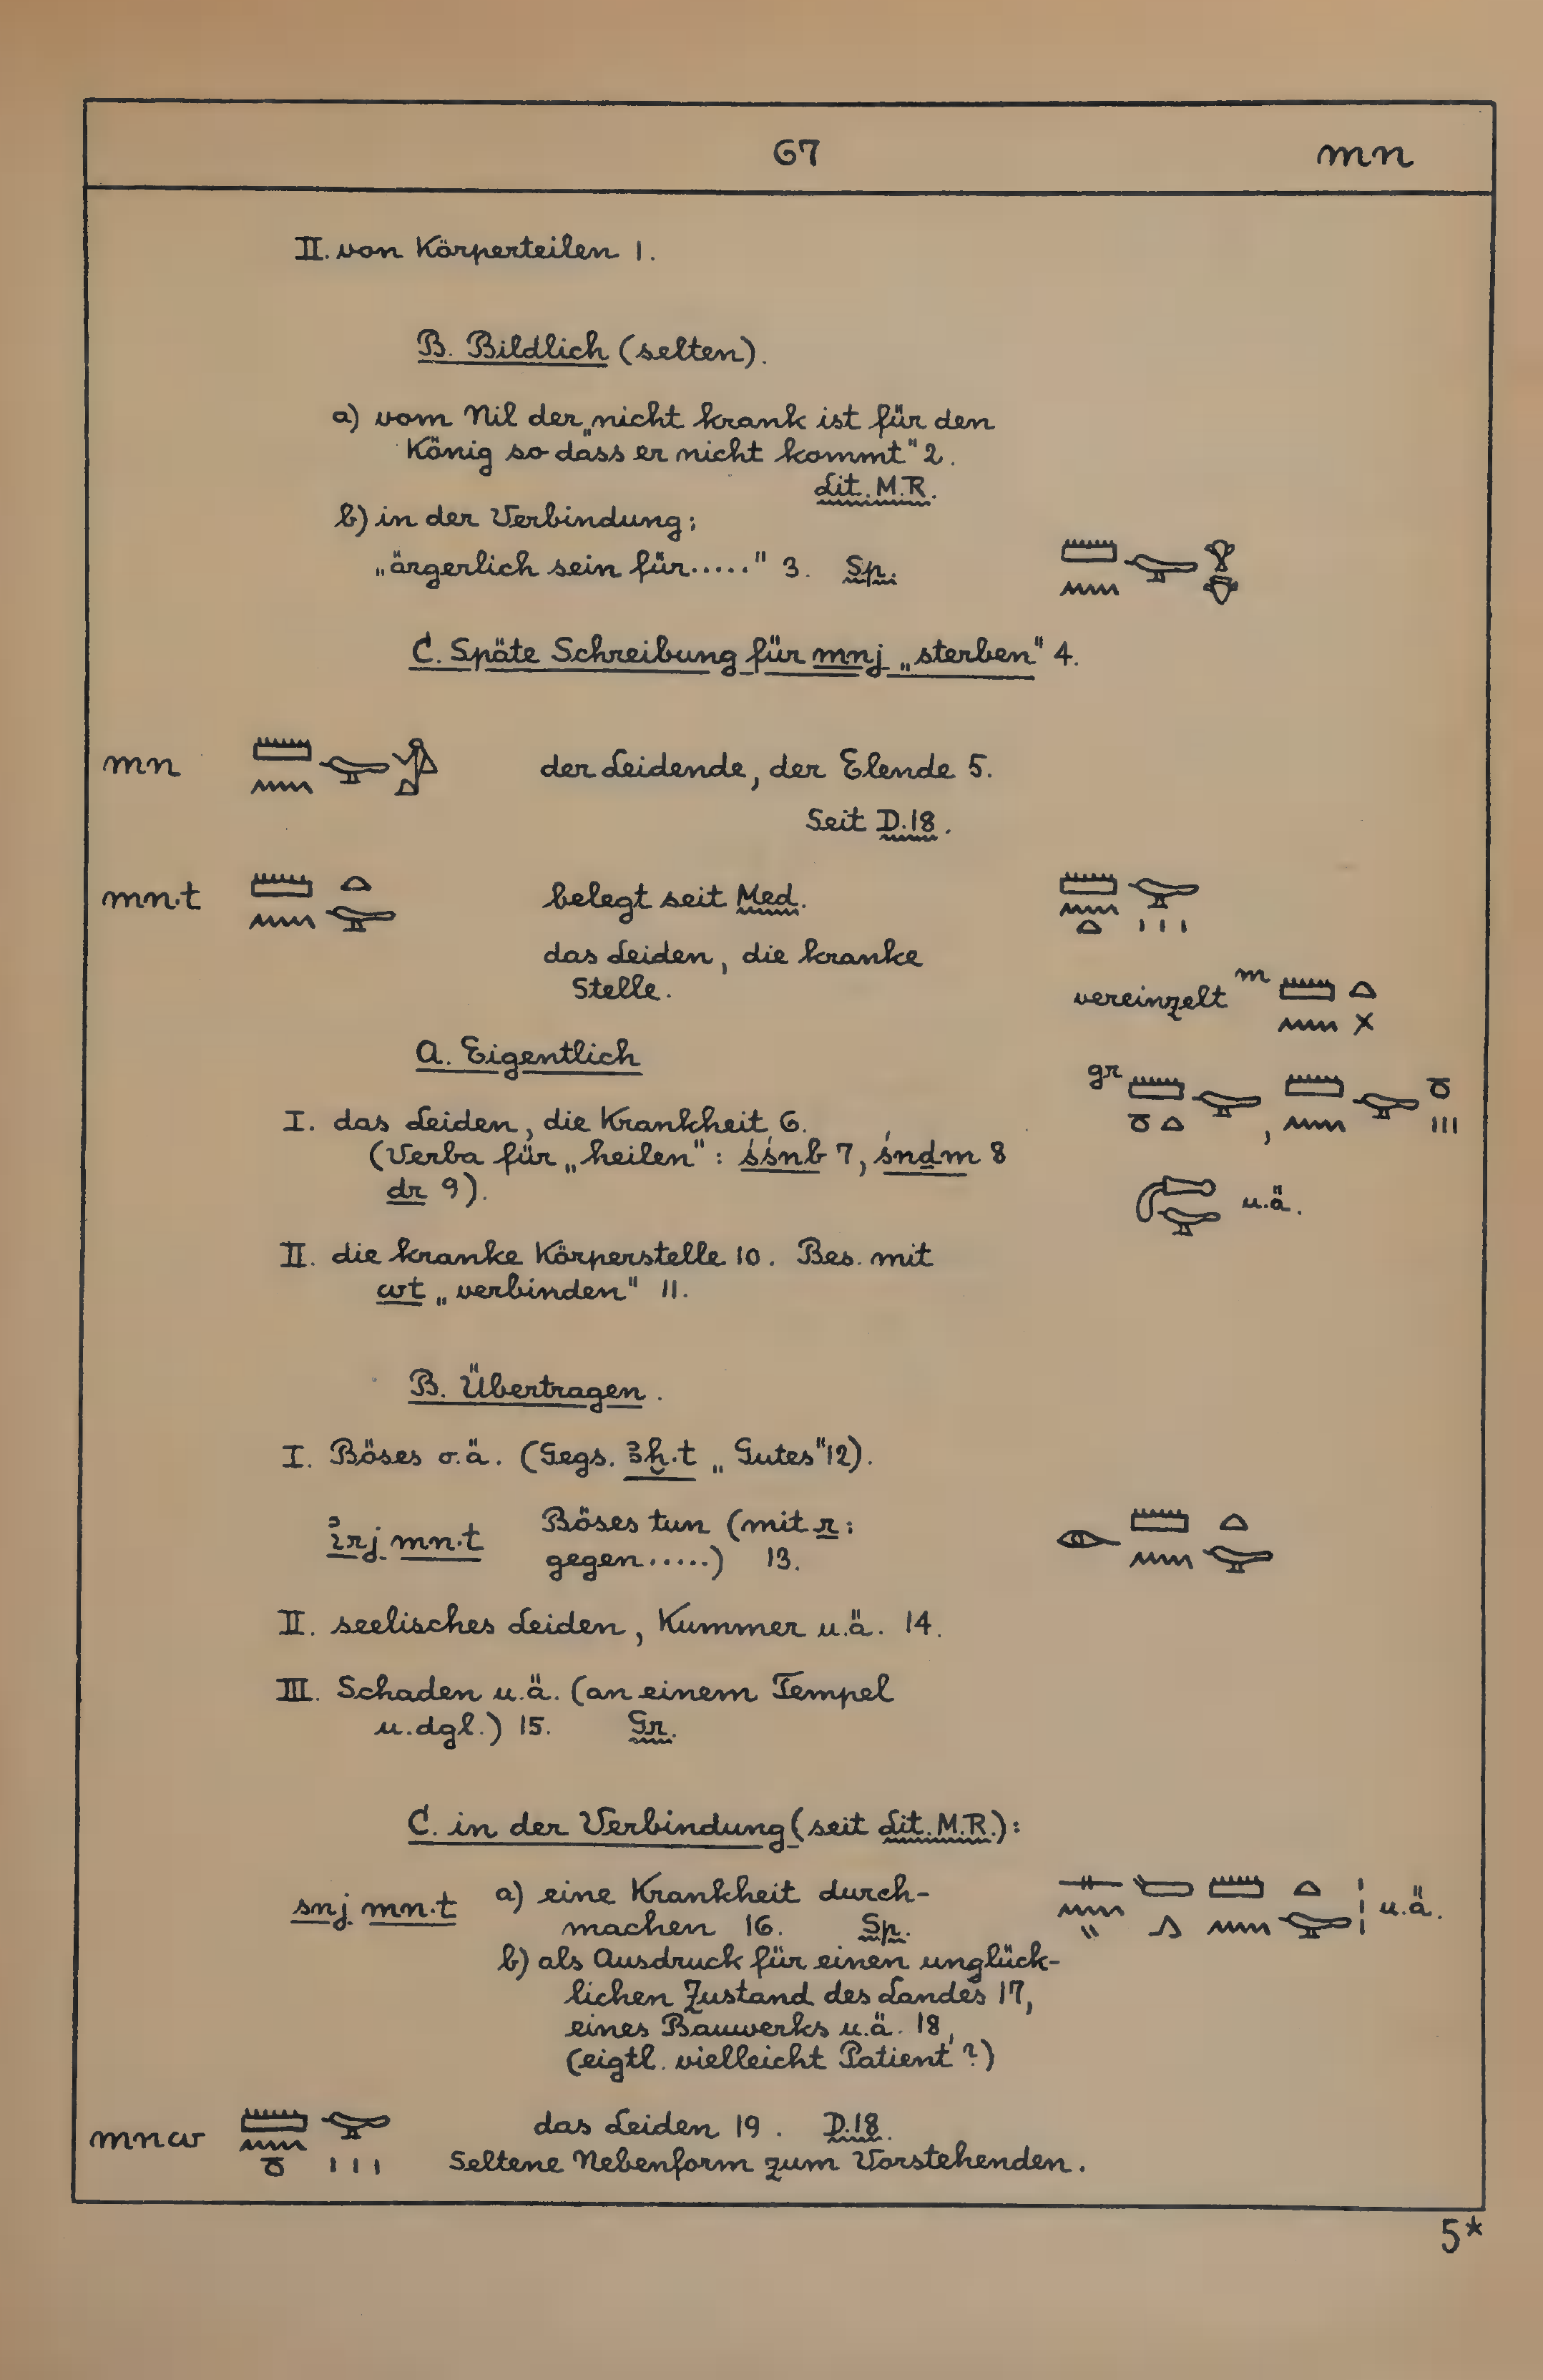 67 mn
II. von Körperteilen 1.
B. Bildlich (selten).
a) vom Nil der „nicht krank ist für den
König so dass er nicht kommt" 2.
Lit. M.R.
b) in der Verbindung;
„ärgerlich sein für....." 3. Sp.
C. Späte Schreibung für mnj „sterben" 4.
mn 𓏠𓈖𓅪𓀗 der Leidende, der Elende 5.
Seit D.18.
mn·t 𓏠𓈖𓏏𓅪 belegt seit Med. 𓏠𓈖𓏏𓅪𓏥
das Leiden, die kranke
Stelle.
vereinzelt m 𓏠𓈖𓏏𓏴
A. Eigentlich
gr 𓏠𓏌𓏏𓅪, 𓏠𓈖𓅪𓏌𓏥
I. das Leiden, die Krankheit 6.
(Verba für „heilen": śśnb 7, śnḏm 8
dr 9).
𓅪 u.ä.
II. die kranke Körperstelle 10. Bes. mit
wt „verbinden" 11.
B. Übertragen.
I. Böses o.ä. (Gegs. ꜣḫ·t „Gutes" 12).
ı͗rj mn·t Böses tun (mit r: 𓁹𓏠𓈖𓏏𓅪
gegen.....) 13.
II. seelisches Leiden, Kummer u.ä. 14.
III. Schaden u.ä. (an einem Tempel
u.dgl.) 15. Gr.
C. in der Verbindung (seit Lit. M.R.):
snj mn·t a) eine Krankheit durch- 𓊃𓈖𓏭𓍘𓂻𓏠𓈖𓏏𓅪𓏥 u.ä.
machen 16. Sp.
b) als Ausdruck für einen unglück-
lichen Zustand des Landes 17,
eines Bauwerks u.ä. 18,
(eigtl. vielleicht Patient?)
mnw 𓏠𓈖𓏌𓅪𓏥 das Leiden 19. D.18.
Seltene Nebenform zum Vorstehenden.
5*